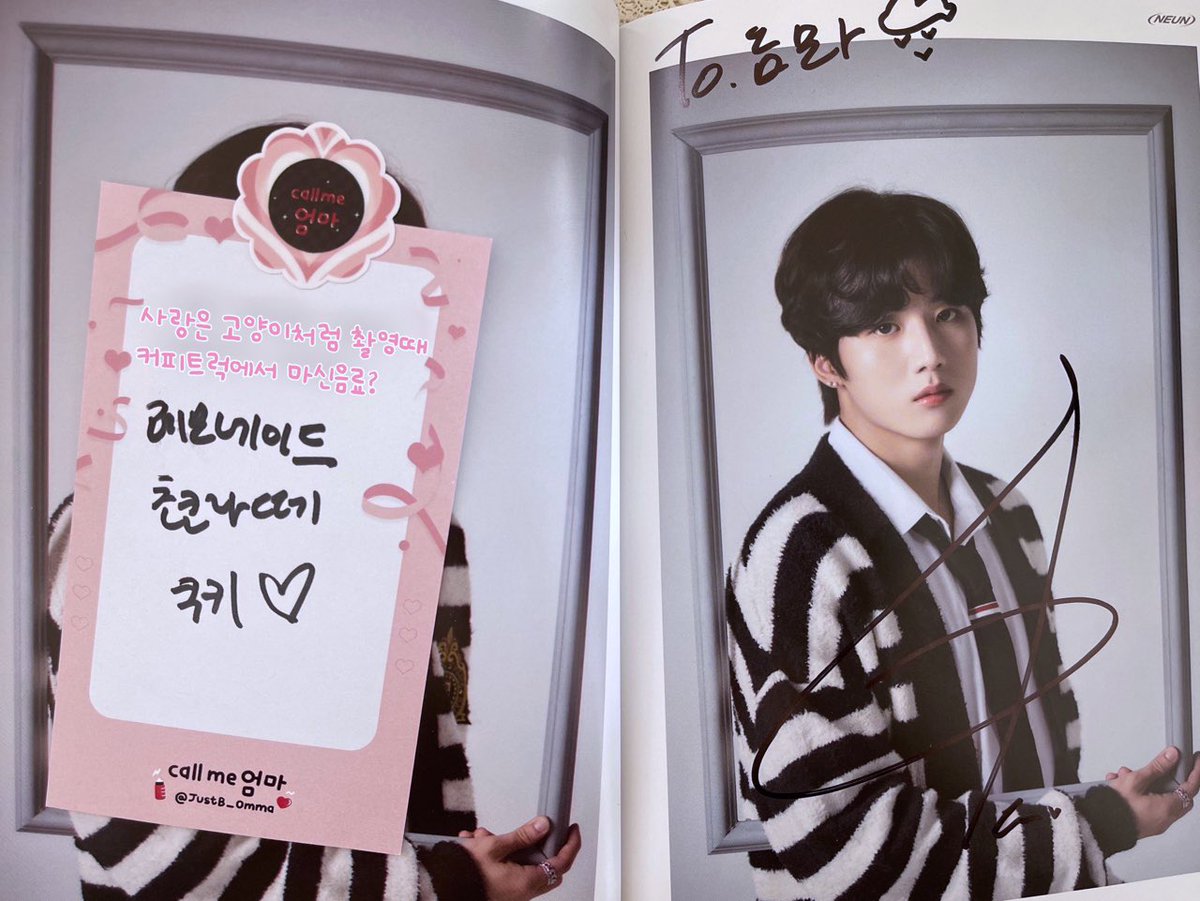 call me
엄마
사랑은 고양이처럼 촬영때
커피트럭에서 마신음료?
레모네이드
초코라떼
쿠키 ♡
call me 엄마
@JustB_Omma
To. 음마
(NEUN)